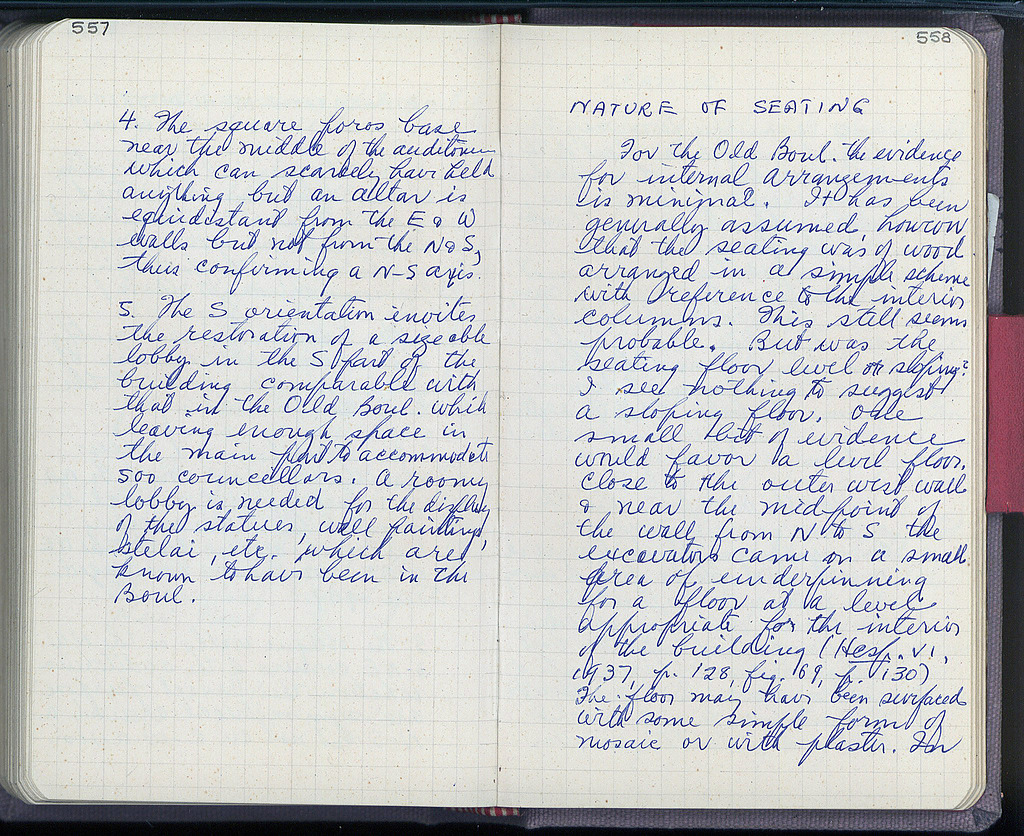 557
4. The square poros base
near the middle of the auditorium
which can scarcely have held
anything but an altar is
equidistant from the E & W
walls but not from the N & S,
thus confirming a N-S axis.
5. The S orientation invites
the restoration of a sizeable
lobby in the S part of the
building comparable with
that in the Old Boul. while
leaving enough space in
the main part to accommodate
500 councellars. A roomy
lobby is needed for the display
of the statues, wall paintings,
stelai, etc. which are
known to have been in the
Boul.
558
NATURE OF SEATING
For the Old Boul. the evidence
for internal arrangements
is minimal. It has been
generally assumed, however
that the seating was of wood
arranged in a simple scheme
with reference to the interior
columns. This still seems
probable. But was the
seating floor level or sloping?
I see nothing to suggest
a sloping floor. One
small bit of evidence
would favor a level floor.
Close to the outer west wall
& near the midpoint of
the wall from N to S the
excavators came on a small
area of underpinning
for a floor at a level
appropriate for the interior
of the building (Hesp. VI,
1937, p. 128, fig. 69, p. 130)
The floor may have been surfaced
with some simple form of
mosaic or with plaster. In